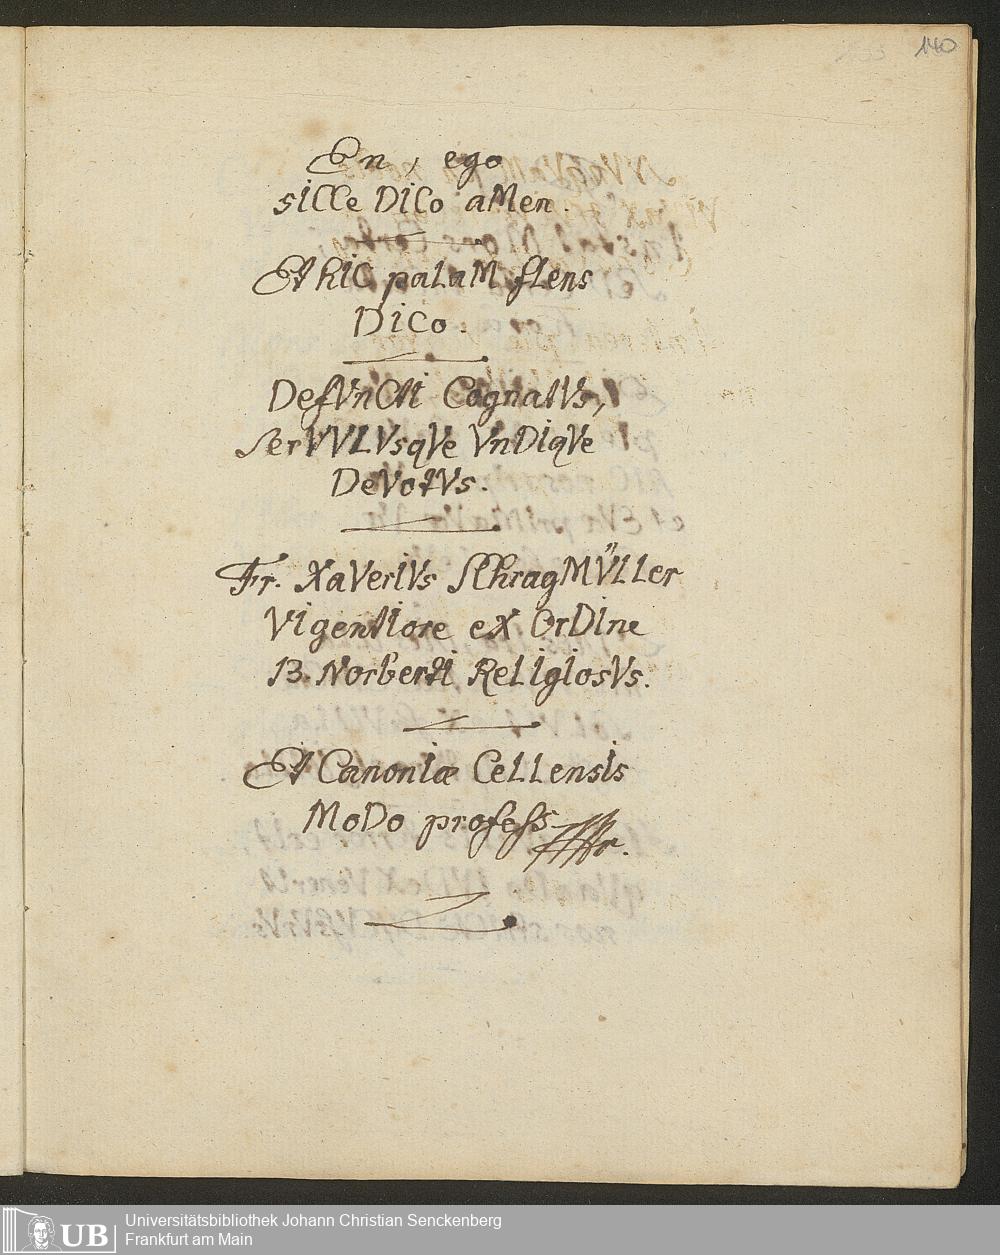 140
En, ego
sILLe DICo aMen.
Et hIC paLaM fLens
DICo.
DefVnCti CognatVs,
serVVLVsqVe VnDIqVe
DeVotVs.
Fr. XaVerIVs SChragMVLLer
VIgentIore eX OrDIne
B. NorbertI ReLIgIosVs.
Et CanonIæ CeLLensIs
MoDo profess
Universitätsbibliothek Johann Christian Senckenberg
UB
Frankfurt am Main